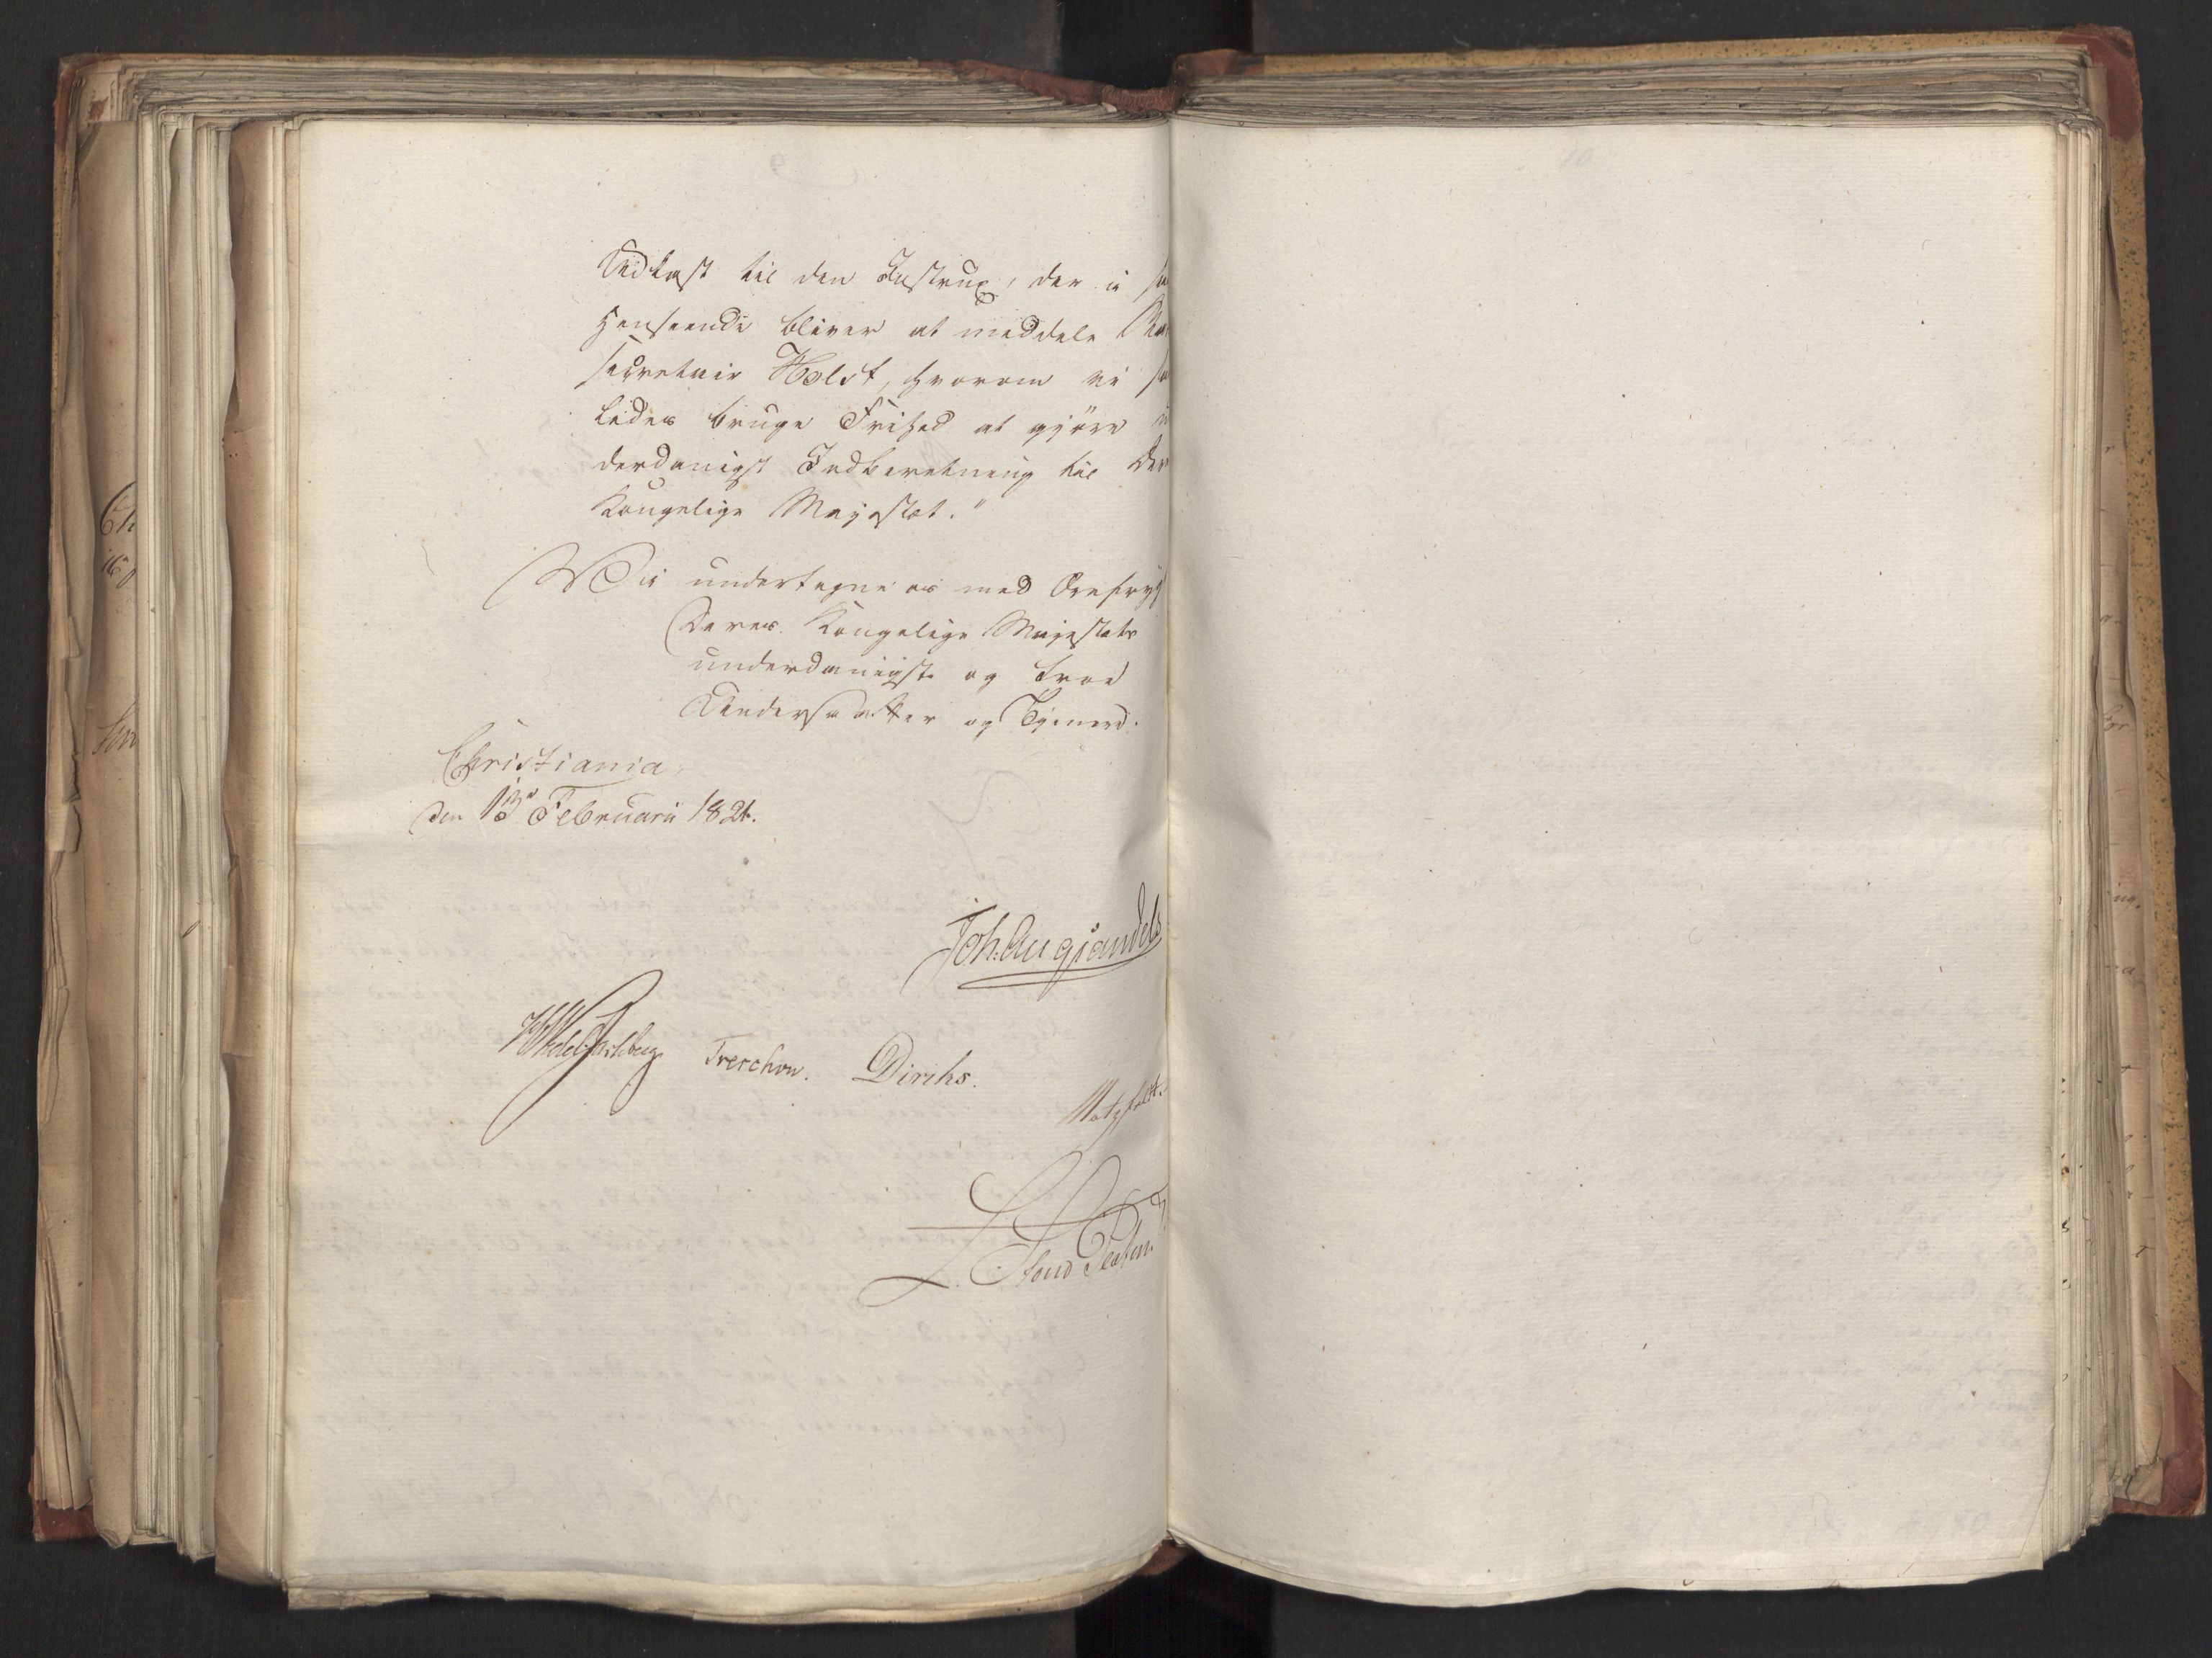 Udkast til den Instrux, der i
Henseende bliver at meddele
secretair Holst, hvorom vi
ledes bruge Frihed at gjöre
derdanigst Indberetning til
Kongelige Majestæt."
Vi undertegne os med Ærefrygt
Deres Kongelige Majestæts
underdanigste og troe
Undersaatter og Tjenere.
Christiania,
den 13de Februari 1821.
Joh. Aug Sandels
HWedelJarlsberg Treschow. Diriks.
Motzfeldt.